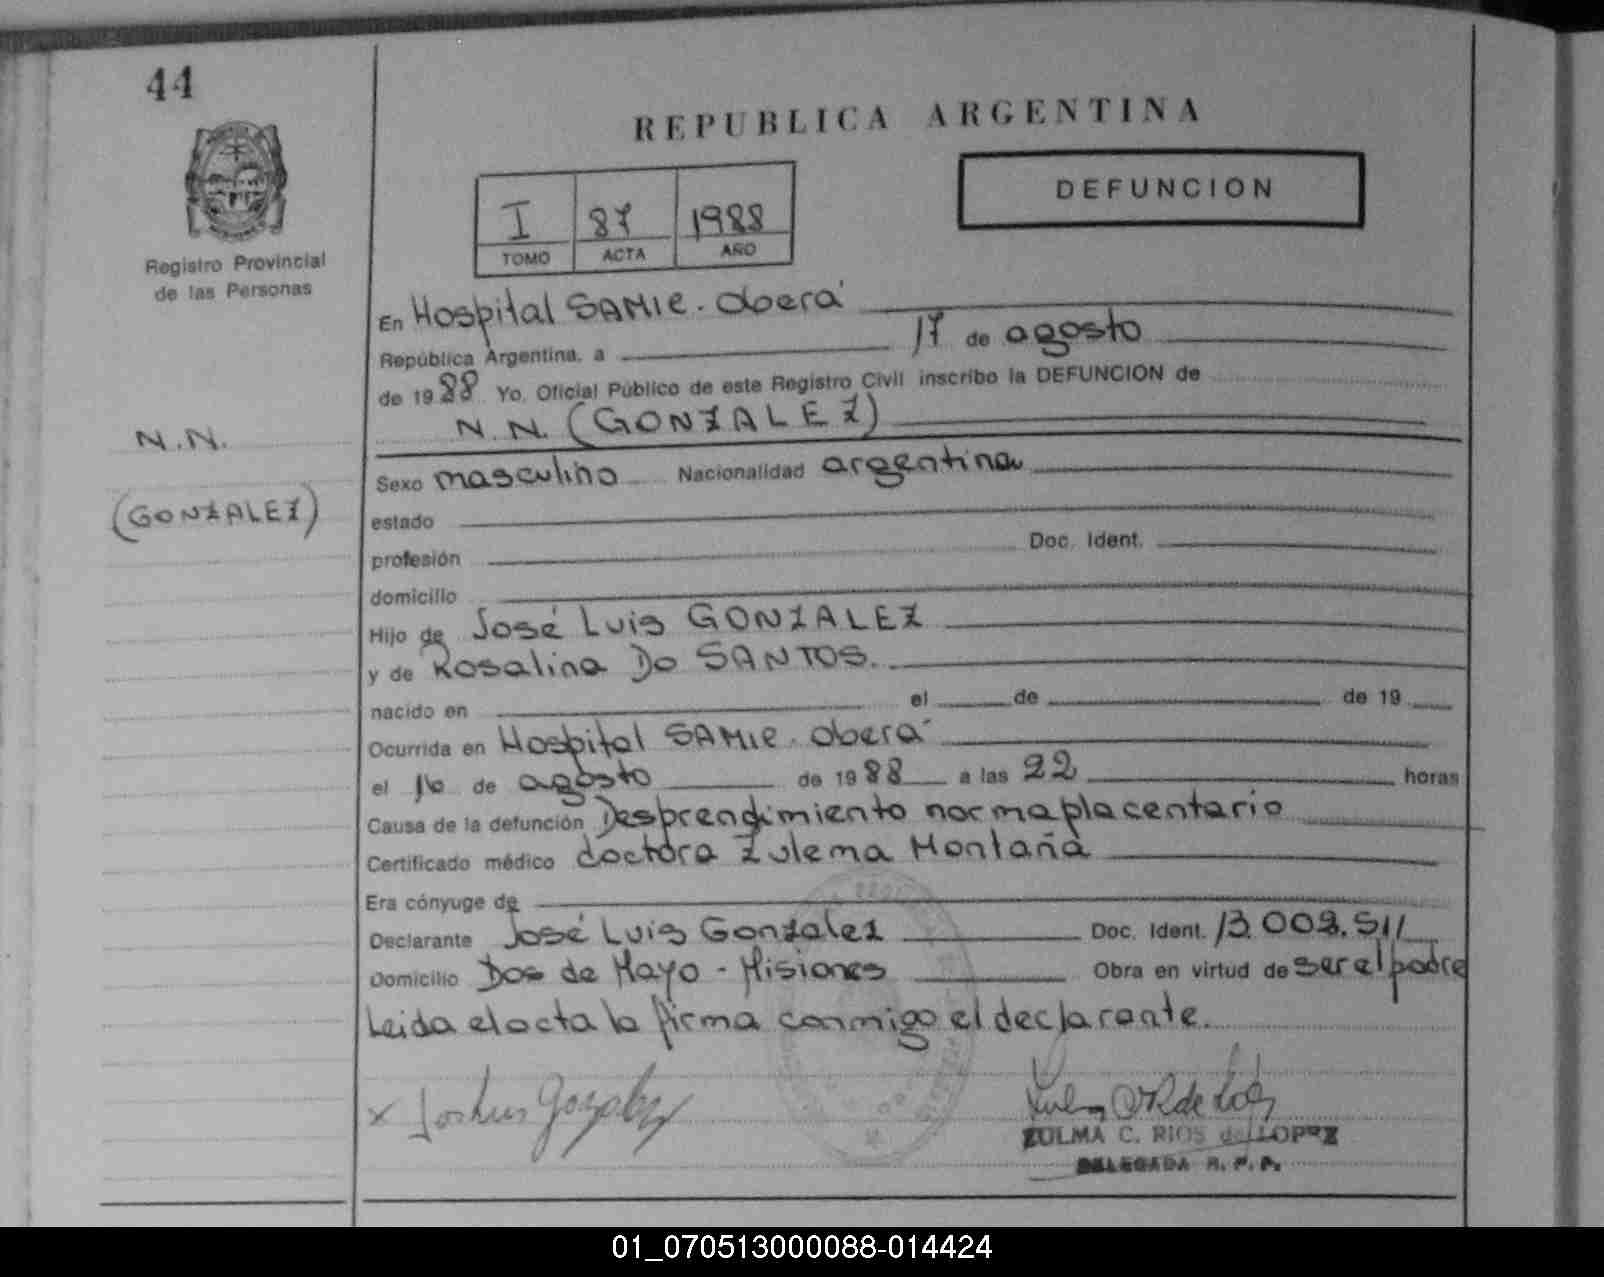 44
REPUBLICA ARGENTINA
Registro Provincial
de las Personas
I 87 1988
TOMO ACTA AÑO
DEFUNCION
En Hospital SAMIC. Oberá
República Argentina, a 17 de agosto
de 1988 Yo, Oficial Público de este Registro Civil inscribo la DEFUNCION de
N.N. (GONZALEZ)
N.N.
(GONZALEZ)
Sexo masculino Nacionalidad argentina
estado
profesión Doc. Ident.
domicilio
Hijo de José Luis GONZALEZ
y de Rosalina Do SANTOS.
nacido en el de de 19
Ocurrida en Hospital SAMIC. Oberá
el 16 de agosto de 1988 a las 22 horas
Causa de la defunción Desprendimiento normaplacentario
Certificado médico doctora Zulema Montaña
Era cónyuge de
Declarante José Luis Gonzalez Doc. Ident. 13.009.511
Domicilio Dos de Mayo - Misiones Obra en virtud de ser el padre
Leida el acta la firma conmigo el declarante.
x
ZULMA C. RIOS de LOPEZ
DELEGADA R. P. P.
01_070513000088-014424